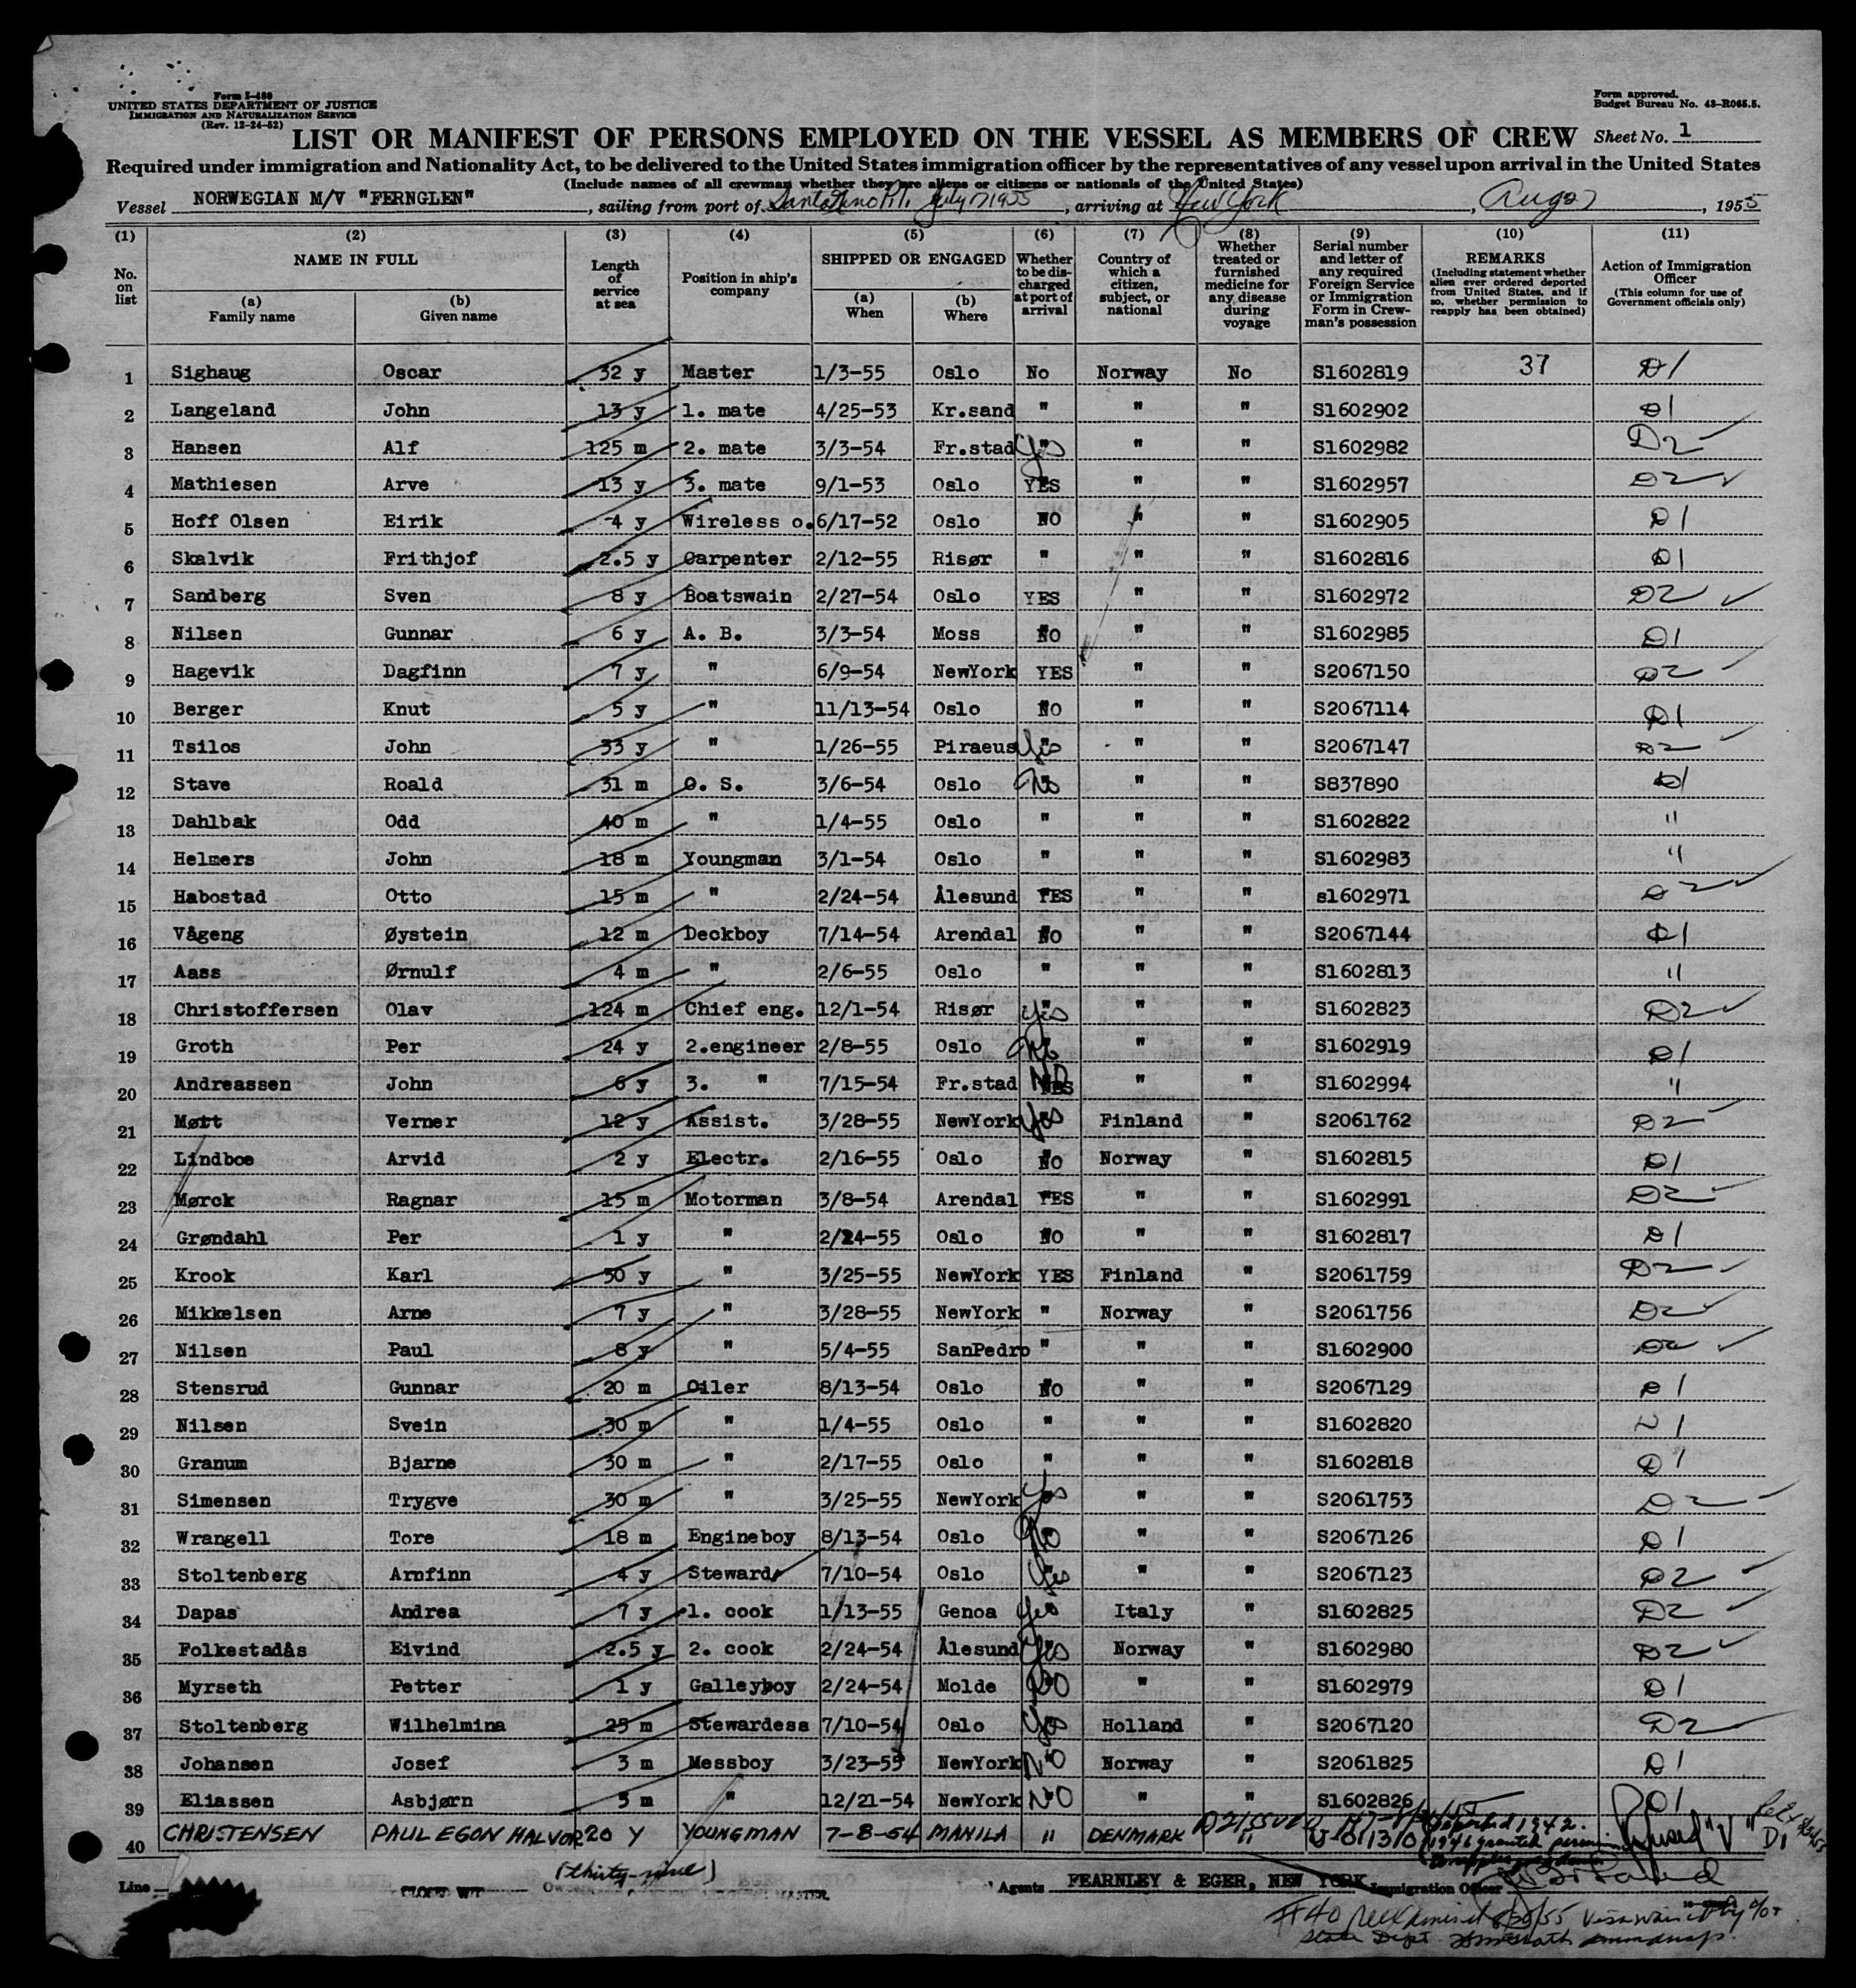 Form I-480
UNITED STATES DEPARTMENT OF JUSTICE
IMMIGRATION AND NATURALIZATION SERVICE
(Rev. 12-24-52)
Form approved.
Budget Bureau No. 43-R065.5.
LIST OR MANIFEST OF PERSONS EMPLOYED ON THE VESSEL AS MEMBERS OF CREW Sheet No. 1
Required under immigration and Nationality Act, to be delivered to the United States immigration officer by the representatives of any vessel upon arrival in the United States
(Include names of all crewman whether they are aliens or citizens or nationals of the United States)
Vessel NORWEGIAN M/V "FERNGLEN", sailing from port of July 1955, arriving at New York, Aug 2, 1955
(1) (2) (3) (4) (5) (6) (7) (8) (9) (10) (11)
No. on list
NAME IN FULL
(a) Family name
(b) Given name
Length of service at sea
Position in ship's company
SHIPPED OR ENGAGED
(a) When
(b) Where
Whether to be discharged at port of arrival
Country of which a citizen, subject, or national
Whether treated or furnished medicine for any disease during voyage
Serial number and letter of any required Foreign Service or Immigration Form in Crewman's possession
REMARKS
(Including statement whether alien ever ordered deported from United States, and if so, whether permission to reapply has been obtained)
Action of Immigration Officer
(This column for use of Government officials only)
1 Sighaug Oscar 32 y Master 1/3-55 Oslo No Norway No S1602819 37 D1
2 Langeland John 13 y 1. mate 4/25-53 Kr.sand " " " S1602902 D1
3 Hansen Alf 125 m 2. mate 3/3-54 Fr.stad Yes " " S1602982 D2
4 Mathiesen Arve 13 y 3. mate 9/1-53 Oslo YES " " S1602957 D2
5 Hoff Olsen Eirik 4 y Wireless o. 6/17-52 Oslo NO " " S1602905 D1
6 Skalvik Frithjof 2.5 y Carpenter 2/12-55 Risør " " " S1602816 D1
7 Sandberg Sven 8 y Boatswain 2/27-54 Oslo YES " " S1602972 D2
8 Nilsen Gunnar 6 y A. B. 3/3-54 Moss NO " " S1602985 D1
9 Hagevik Dagfinn 7 y " 6/9-54 NewYork YES " " S2067150 D2
10 Berger Knut 5 y " 11/13-54 Oslo NO " " S2067114 D1
11 Tsilos John 33 y " 1/26-55 Piraeus Yes " " S2067147 D2
12 Stave Roald 31 m O. S. 3/6-54 Oslo No " " S837890 D1
13 Dahlbak Odd 40 m " 1/4-55 Oslo " " " S1602822 "
14 Helmers John 18 m Youngman 3/1-54 Oslo " " " S1602983 "
15 Habostad Otto 15 m " 2/24-54 Ålesund YES " " s1602971 D2
16 Vågeng Øystein 12 m Deckboy 7/14-54 Arendal NO " " S2067144 D1
17 Aass Ørnulf 4 m " 2/6-55 Oslo " " " S1602813 "
18 Christoffersen Olav 124 m Chief eng. 12/1-54 Risør Yes " " S1602823 D2
19 Groth Per 24 y 2.engineer 2/8-55 Oslo No " " S1602919 D1
20 Andreassen John 6 y 3. " 7/15-54 Fr.stad NO YES " " S1602994 "
21 Møtt Verner 12 y Assist. 3/28-55 NewYork Yes Finland " S2061762 D2
22 Lindboe Arvid 2 y Electr. 2/16-55 Oslo NO Norway " S1602815 D1
23 Mørck Ragnar 15 m Motorman 3/8-54 Arendal YES " " S1602991 D2
24 Grøndahl Per 1 y " 2/24-55 Oslo NO " " S1602817 D1
25 Krook Karl 30 y " 3/25-55 NewYork YES Finland " S2061759 D2
26 Mikkelsen Arne 7 y " 3/28-55 NewYork " Norway " S2061756 D2
27 Nilsen Paul 8 y " 5/4-55 SanPedro " " " S1602900 D2
28 Stensrud Gunnar 20 m Oiler 8/13-54 Oslo NO " " S2067129 D1
29 Nilsen Svein 30 m " 1/4-55 Oslo " " " S1602820 D1
30 Granum Bjarne 30 m " 2/17-55 Oslo " " " S1602818 D1
31 Simensen Trygve 30 m " 3/25-55 NewYork Yes " " S2061753 D2
32 Wrangell Tore 18 m Engineboy 8/13-54 Oslo NO " " S2067126 D1
33 Stoltenberg Arnfinn 4 y Steward 7/10-54 Oslo Yes " " S2067123 D2
34 Dapas Andrea 7 y 1. cook 1/13-55 Genoa Yes Italy " S1602825 D2
35 Folkestadås Eivind 2.5 y 2. cook 2/24-54 Ålesund Yes Norway " S1602980 D2
36 Myrseth Petter 1 y Galleyboy 2/24-54 Molde NO " " S1602979 D1
37 Stoltenberg Wilhelmina 25 m Stewardess 7/10-54 Oslo Yes Holland " S2067120 D2
38 Johansen Josef 3 m Messboy 3/23-55 NewYork NO Norway " S2061825 D1
39 Eliassen Asbjørn 5 m " 12/21-54 NewYork NO " " S1602826 D1
40 CHRISTENSEN PAUL EGON HALVOR 20 Y YOUNGMAN 7-8-54 MANILA " DENMARK " 1942. 1946 granted Refused "V" D1
(thirty-nine)
Line
CLOSED WIT
MASTER.
Agents FEARNLEY & EGER, NEW YORK Immigration Officer
#40 8/30/55 Visa
State Dept